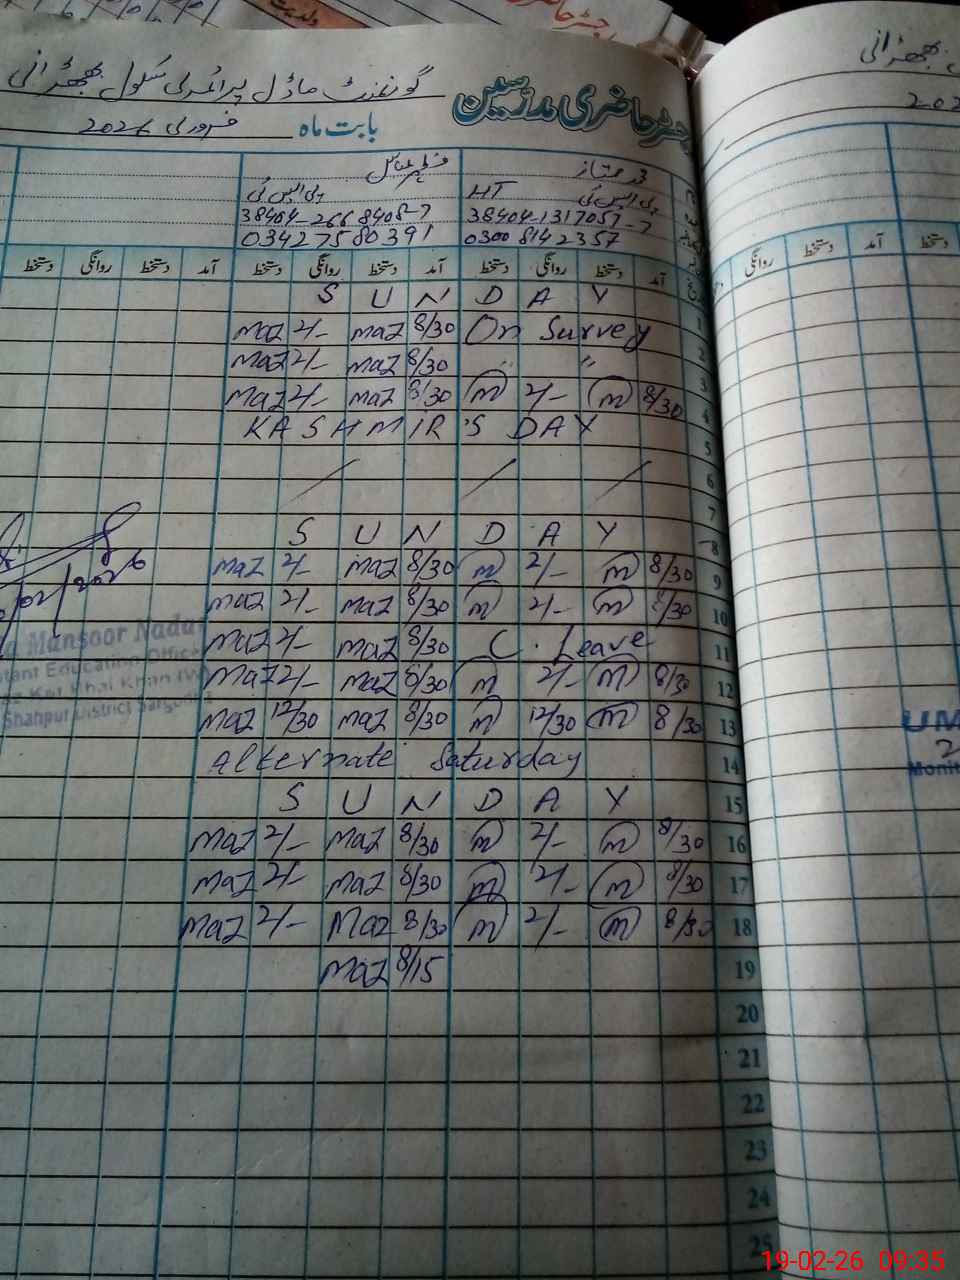 گورنمنٹ ماڈل پرائمری سکول بھڑانی
رجسٹر حاضری مدرسین
بابت ماہ فروری 2026
قمر ممتاز
پی ایس ٹی HT
38404-1317057-7
0300 8142357
پی ایس ٹی
38404-2668408-7
03427580391
آمد دستخط روانگی دستخط آمد دستخط روانگی دستخط آمد دستخط روانگی دستخط
S U N D A Y 1
maz 2/- maz 8/30 On Survey 2
maz 2/- maz 8/30 " " 3
maz 2/- maz 8/30 m 2/- m 8/30 4
KASHMIR'S DAY 5
6
7
S U N D A Y 8
maz 2/- maz 8/30 m 2/- m 8/30 9
maz 2/- maz 8/30 m 2/- m 8/30 10
maz 2/- maz 8/30 C. Leave 11
maz 2/- maz 8/30 m 2/- m 8/30 12
maz 12/30 maz 8/30 m 12/30 m 8/30 13
Alternate Saturday 14
S U N D A Y 15
maz 2/- maz 8/30 m 2/- m 8/30 16
maz 2/- maz 8/30 m 2/- m 8/30 17
maz 2/- Maz 8/30 m 2/- m 8/30 18
maz 8/15 19
20
21
22
23
24
25
/02/2026
Mansoor Nadu
tant Education Office
Kot Bhai Khan (W)
Shahpur District Sargodha
بھڑانی
202
آمد دستخط روانگی
UM
2
Monit
19-02-26 09:35